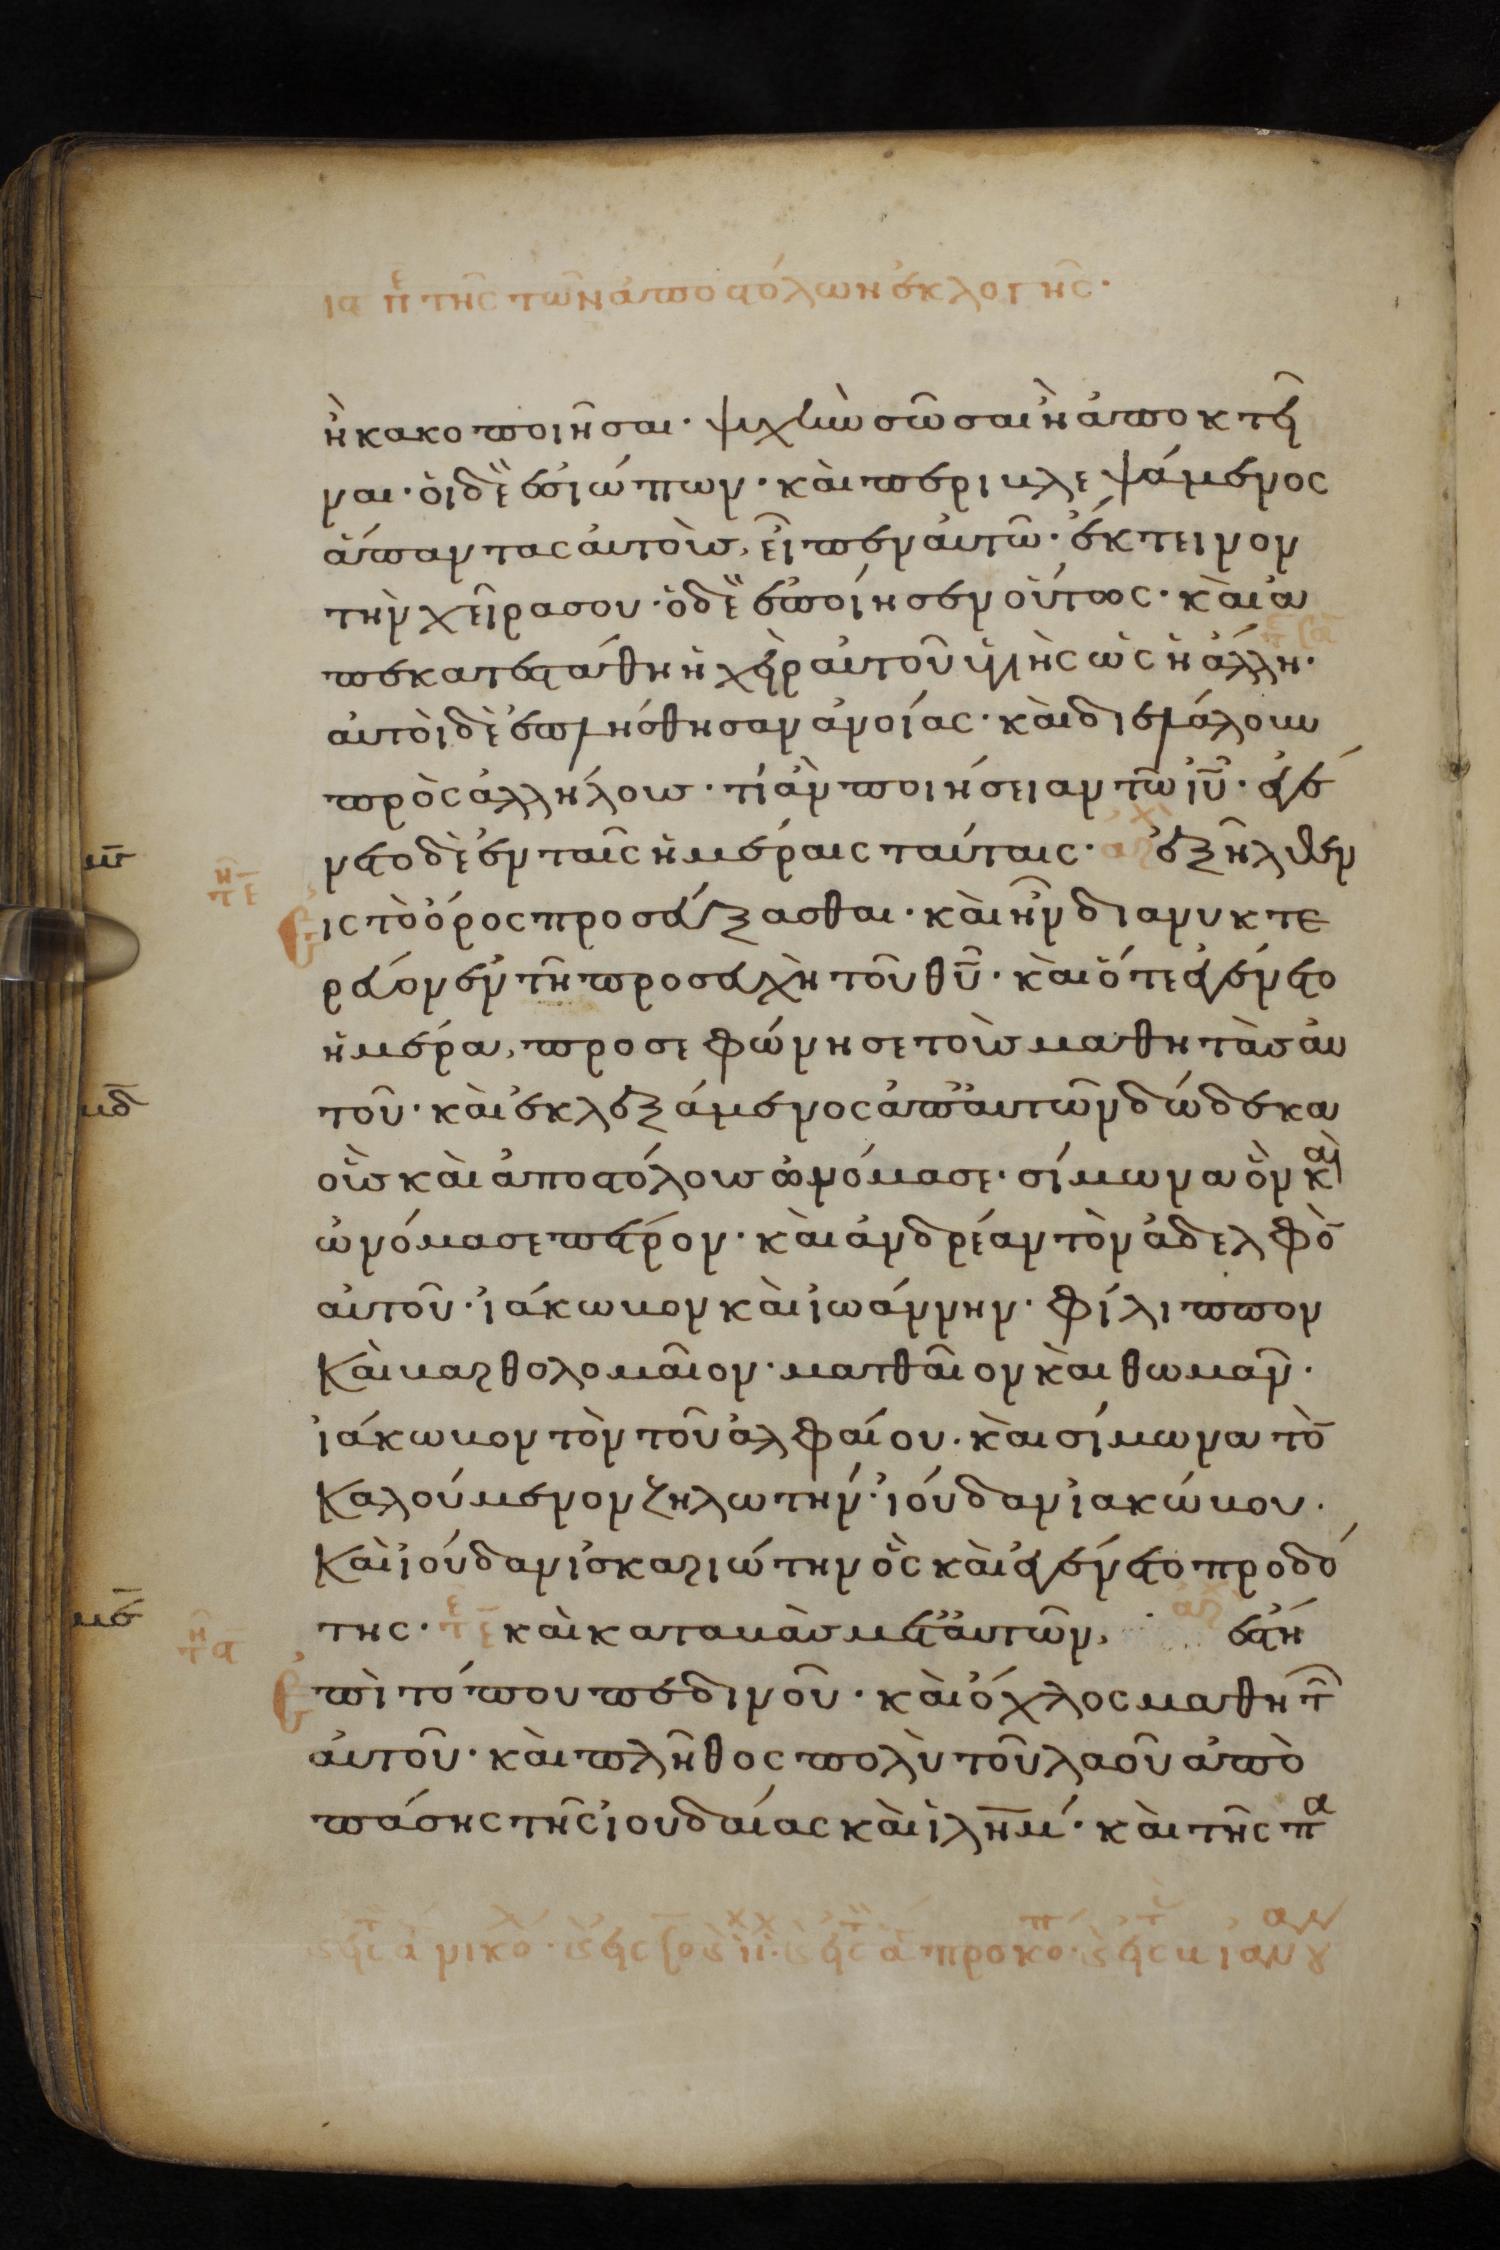 ια πε της των αποστόλων ἐκλογῆς·
ἢ κακοποιῆσαι· ψυχὴν σῶσαι ἢ ἀποκτεῖ
ναι· οἱ δὲ ἐσιώπων· καὶ περιβλεψάμενος
ἅπαντας αὐτοὺς, εἶπεν αὐτῶ· ἔκτεινον
τὴν χεῖρα σου· ὁ δὲ ἐποίησεν οὕτως· καὶ ἀ
πεκατεστάθη ἡ χεὶρ αὐτοῦ ὑγιὴς ὡς ἡ ἄλλη·
αὐτοὶ δὲ ἐπλήσθησαν ἀνοίας· καὶ διελάλουν
πρὸς ἀλλήλους· τί ἂν ποιήσειαν τῶ ἰῦ· ἐγέ
νετο δὲ ἐν ταῖς ἡμέραις ταύταις· ἐξῆλθεν
εἰς τὸ ὄρος προσεύξασθαι· καὶ ἦν διανυκτε
ρεύων ἐν τῆ προσευχῆ τοῦ θῦ· καὶ ὅτε ἐγένετο
ἡμέρα, προσεφώνησε τοὺς μαθητὰς αὐ
τοῦ· καὶ ἐκλεξάμενος ἀπ' αὐτῶν δώδεκα
οὓς καὶ ἀποστόλους ὠνόμασε· σίμωνα ὃν καὶ
ὠνόμασε πέτρον· καὶ ἀνδρέαν τὸν ἀδελφὸ̄
αὐτοῦ· ἰάκωβον καὶ ἰωάννην· φίλιππον
καὶ βαρθολομαῖον· ματθαῖον καὶ θωμᾶν·
ἰάκωβον τὸν τοῦ ἀλφαίου· καὶ σίμωνα τὸ̄
καλούμενον ζηλωτήν· ἰούδαν ἰακώβου·
καὶ ἰούδαν ἰσκαριώτην ὃς καὶ ἐγένετο προδό
της· καὶ καταβὰς μετ' αὐτῶν, ἔστη
ἐπὶ τόπου πεδινοῦ· καὶ ὄχλος μαθητ
αὐτοῦ· καὶ πλῆθος πολὺ τοῦ λαοῦ ἀπὸ
πάσης τῆς ἰουδαίας καὶ ἰλη̄μ· καὶ τῆς πα